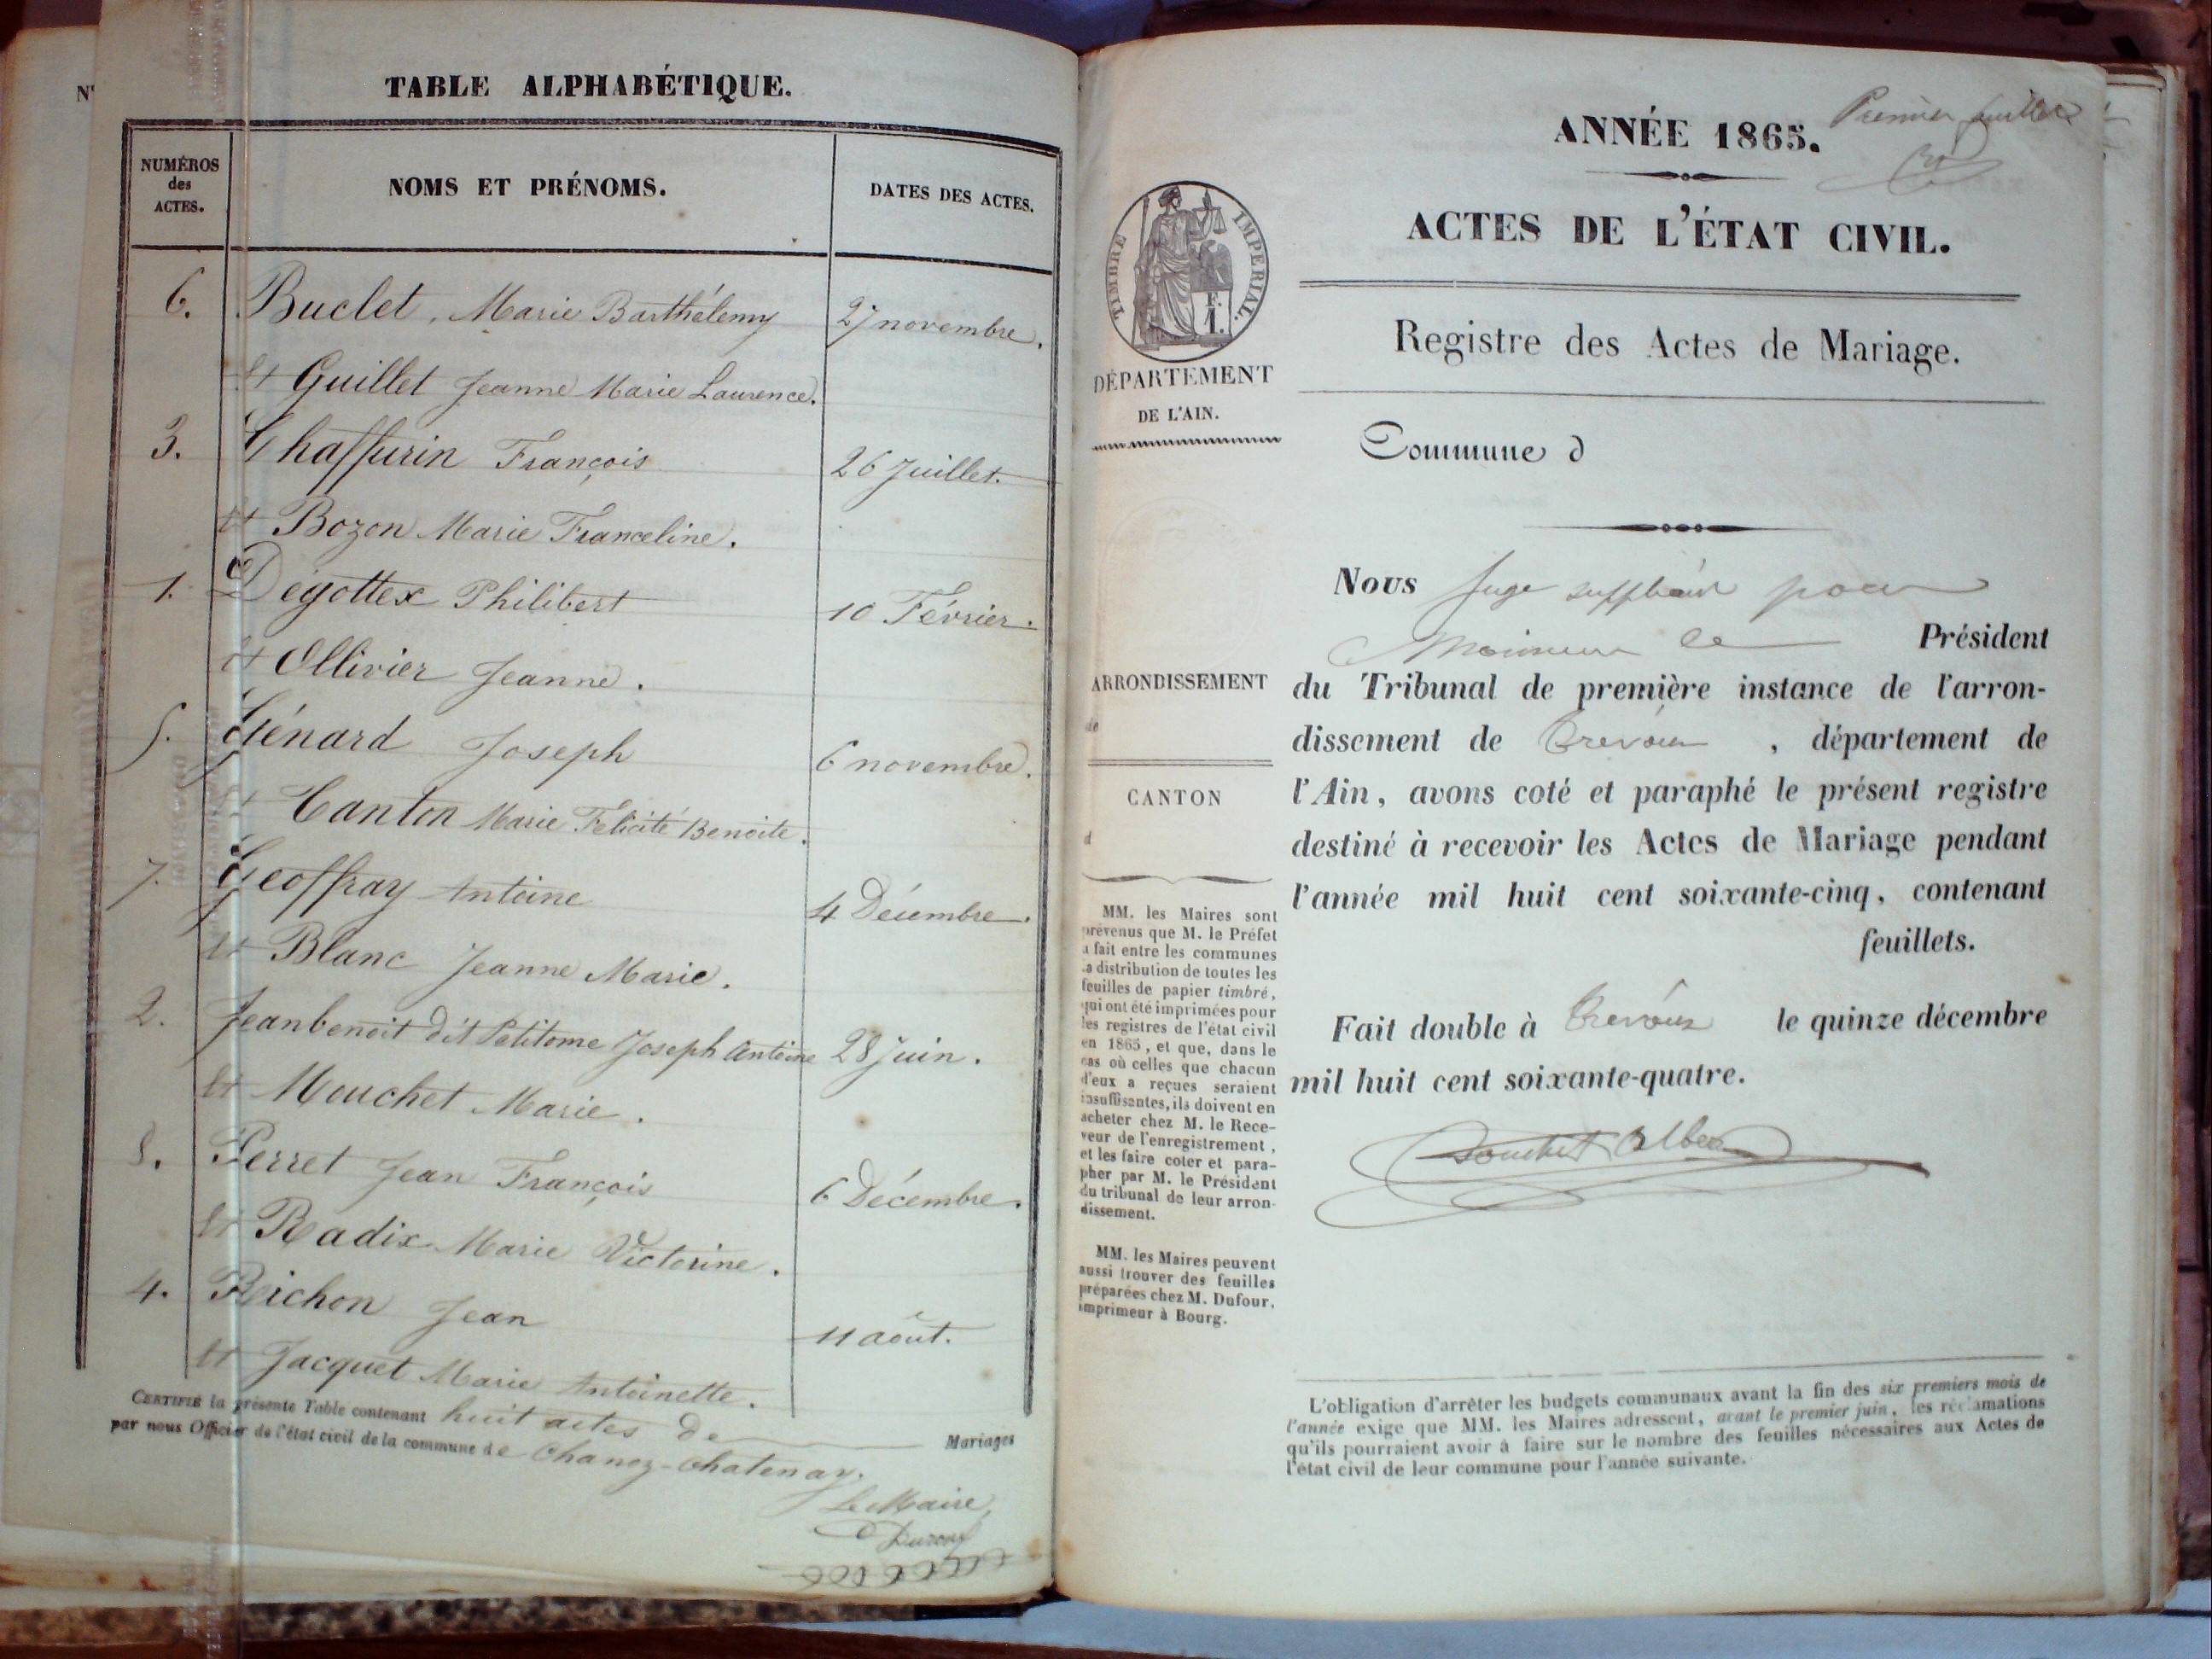 TABLE ALPHABÉTIQUE.
NUMÉROS
des
ACTES.
NOMS ET PRÉNOMS.
DATES DES ACTES.
6. Buclet, Marie Barthélemy 27 novembre.
et Guillet Jeanne Marie Laurence.
3. Chaffurin François 26 Juillet.
et Bozon Marie Franceline.
1. Dégottex Philibert 10 Février.
et Ollivier Jeanne.
5. Génard Joseph 6 novembre.
et Canton Marie Félicité Benoite.
7. Geoffray Antoine 4 Décembre.
et Blanc Jeanne Marie.
2. Jeanbenoit dit Petitome Joseph Antoine 28 Juin.
et Mouchet Marie.
8. Perret Jean François 6 Décembre.
et Radix Marie Victorine.
4. Reichon Jean 11 août.
et Jacquet Marie Antoinette.
CERTIFIÉ la présente Table contenant huit actes de Mariages
par nous Officier de l'état civil de la commune de Chanoz-Chatenay.
Le Maire,
N°
ANNÉE 1865.
Premier feuillet
TIMBRE IMPÉRIAL.
F.
1.
ACTES DE L'ÉTAT CIVIL.
Registre des Actes de Mariage.
DÉPARTEMENT
DE L'AIN.
Commune d
Nous Juge suppléant pour
Monsieur le Président
du Tribunal de première instance de l'arron-
dissement de Trévoux, département de
l'Ain, avons coté et paraphé le présent registre
destiné à recevoir les Actes de Mariage pendant
l'année mil huit cent soixante-cinq, contenant
feuillets.
Fait double à Trévoux le quinze décembre
mil huit cent soixante-quatre.
ARRONDISSEMENT
de
CANTON
d
MM. les Maires sont
prévenus que M. le Préfet
a fait entre les communes
la distribution de toutes les
feuilles de papier timbré,
qui ont été imprimées pour
les registres de l'état civil
en 1865, et que, dans le
cas où celles que chacun
d'eux a reçues seraient
insuffisantes, ils doivent en
acheter chez M. le Rece-
veur de l'enregistrement,
et les faire coter et para-
pher par M. le Président
du tribunal de leur arron-
dissement.
MM. les Maires peuvent
aussi trouver des feuilles
préparées chez M. Dufour,
imprimeur à Bourg.
L'obligation d'arrêter les budgets communaux avant la fin des six premiers mois de
l'année exige que MM. les Maires adressent, avant le premier juin, les réclamations
qu'ils pourraient avoir à faire sur le nombre des feuilles nécessaires aux Actes de
l'état civil de leur commune pour l'année suivante.